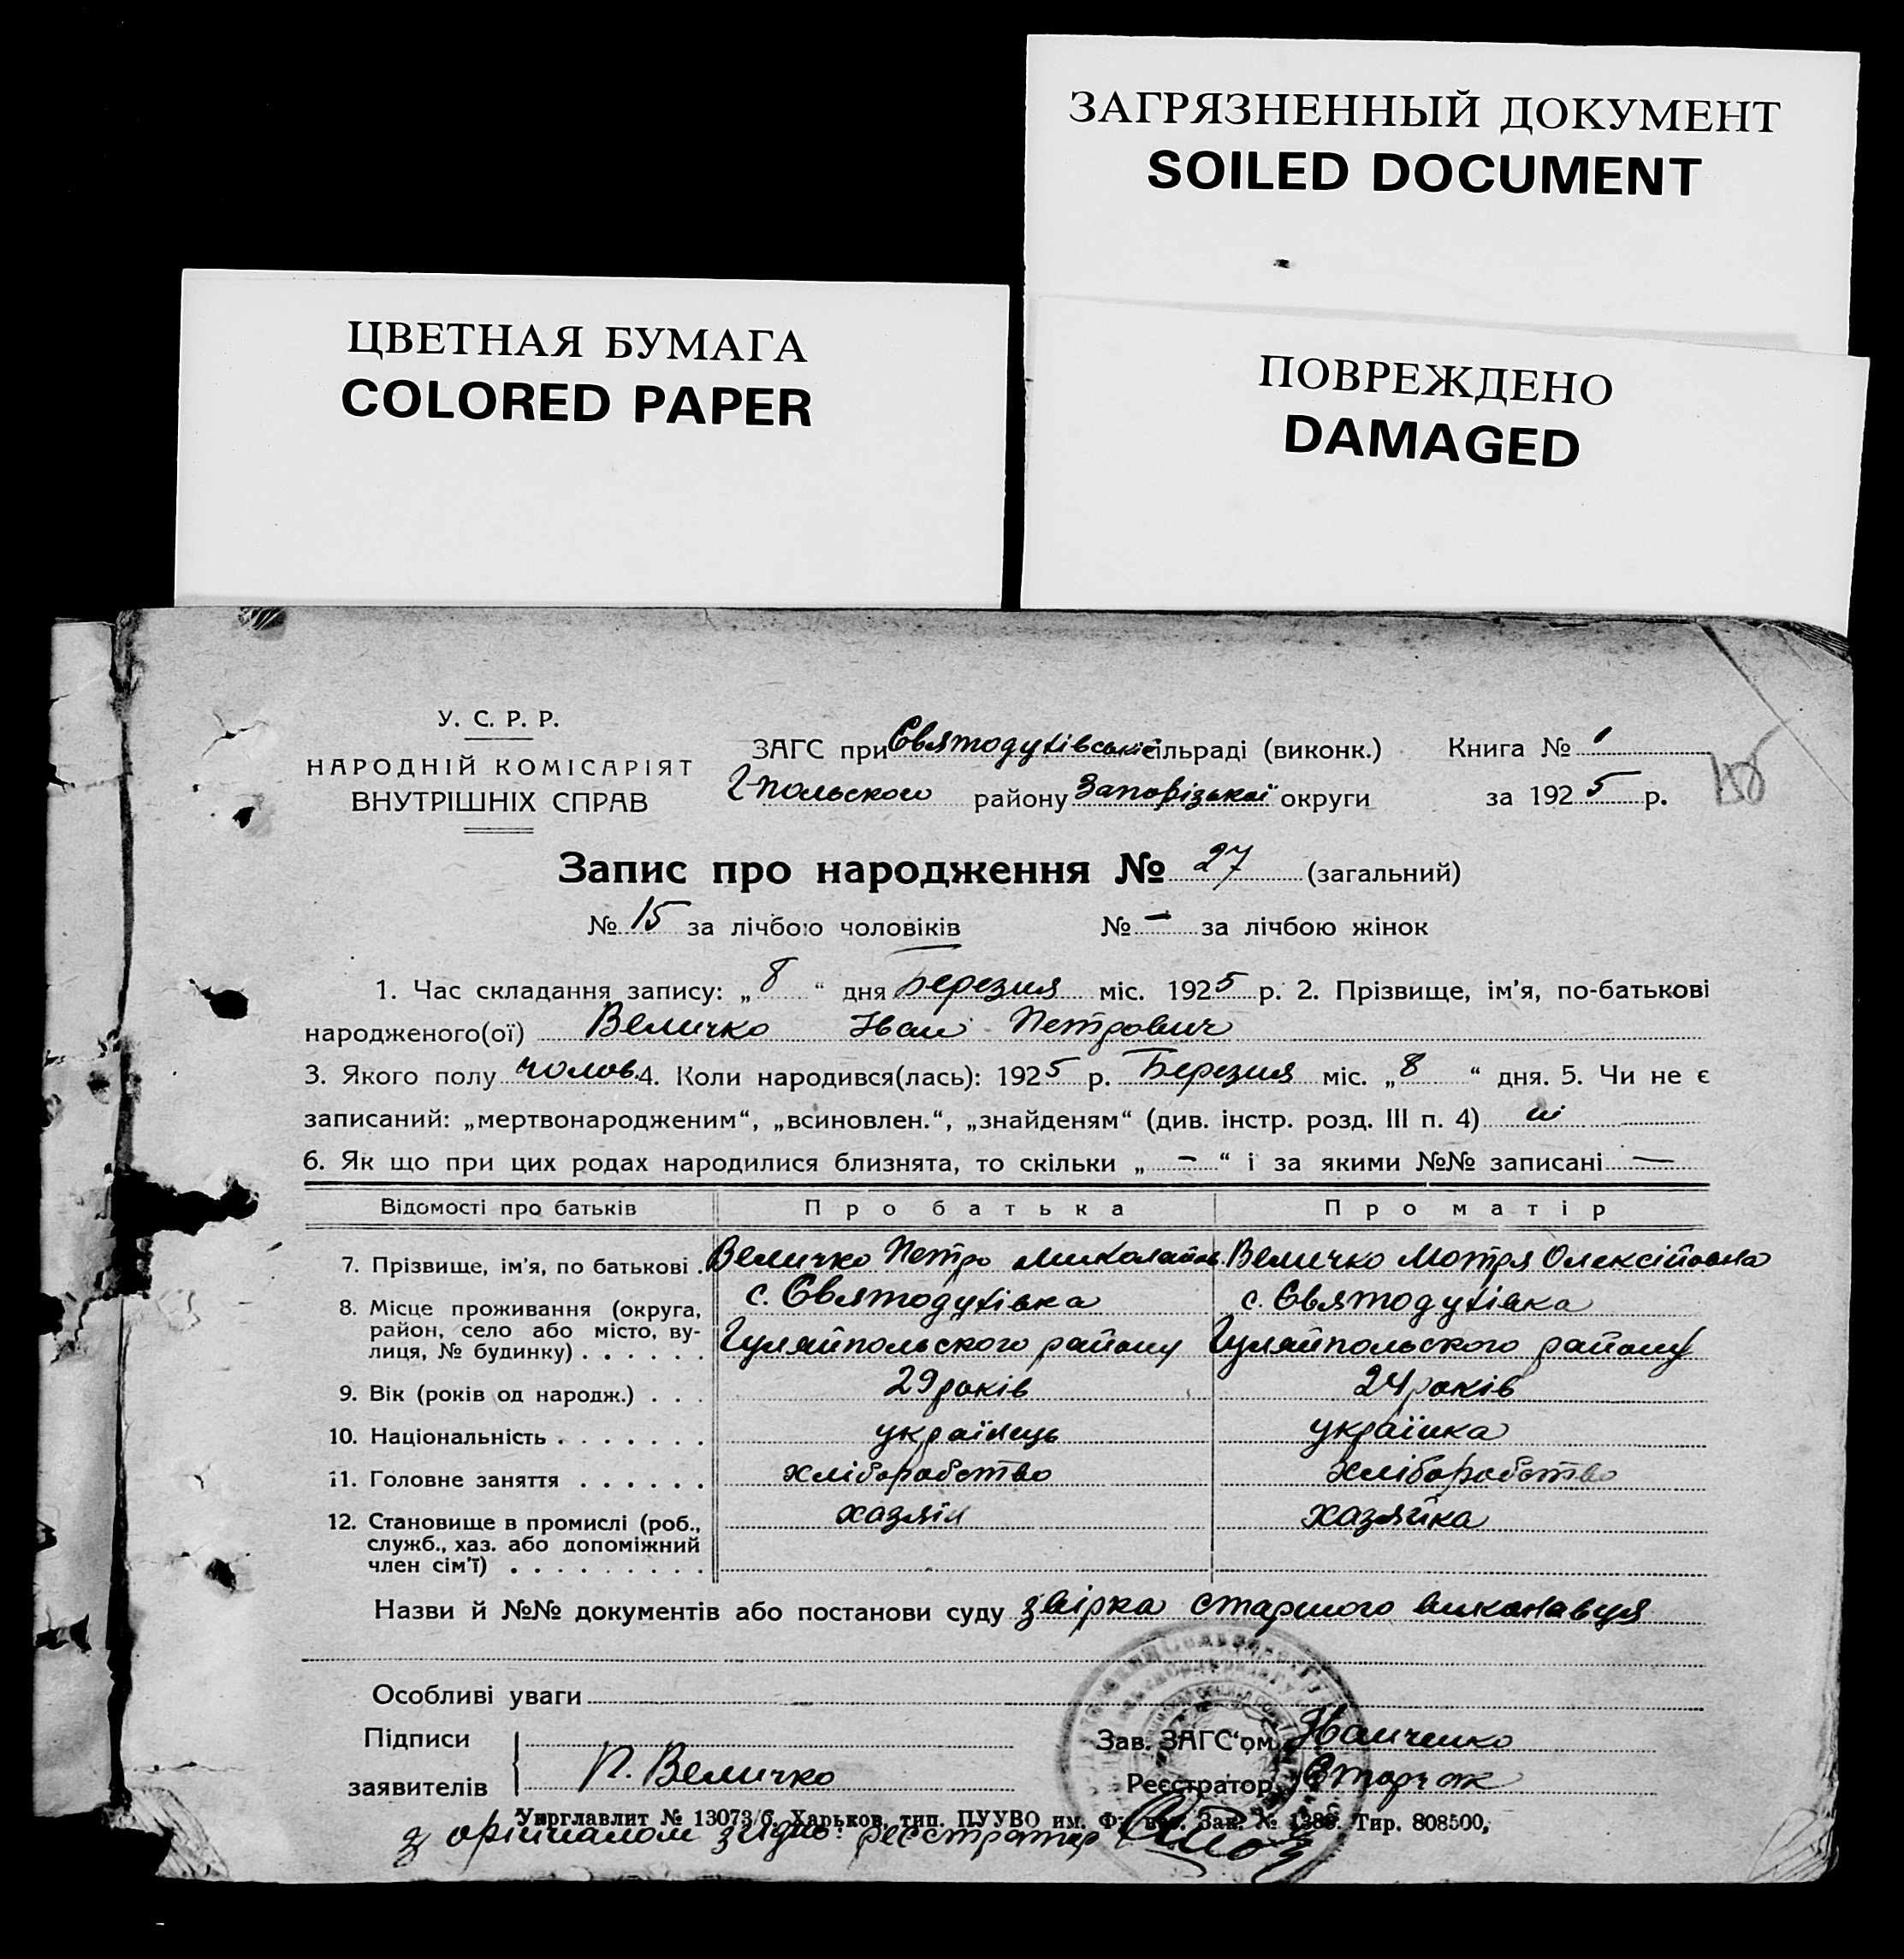 ЗАГРЯЗНЕННЫЙ ДОКУМЕНТ
SOILED DOCUMENT
ЦВЕТНАЯ БУМАГА
COLORED PAPER
ПОВРЕЖДЕНО
DAMAGED
У. С. Р. Р.
НАРОДНІЙ КОМІСАРІЯТ
ВНУТРІШНІХ СПРАВ
ЗАГС при Святодухівській сільраді (виконк.) Книга № 1
Г-польского району Запорізької округи за 1925 р.
Запис про народження № 27 (загальний)
№ 15 за лічбою чоловіків № — за лічбою жінок
1. Час складання запису: „8“ дня Березня міс. 1925 р. 2. Прізвище, ім'я, по-батькові
народженого(ої) Величко Іван Петрович
3. Якого полу чолов. 4. Коли народився(лась): 1925 р. Березня міс. „8“ дня. 5. Чи не є
записаний: „мертвонародженим“, „всиновлен.“, „знайденям“ (див. інстр. розд. III п. 4) ні
6. Як що при цих родах народилися близнята, то скільки „—“ і за якими №№ записані —
Відомості про батьків Про батька Про матір
7. Прізвище, ім'я, по батькові . Величко Петро Миколайов. Величко Мотря Олексійовна
8. Місце проживання (округа, с. Святодухівка с. Святодухівка
район, село або місто, ву-
лиця, № будинку) . . . . . . Гуляйпольского району Гуляйпольского району
9. Вік (років од народж.) . . . 29 років 24 років
10. Національність . . . . . . . українець українка
11. Головне заняття . . . . . . хліборобство хліборобство
12. Становище в промислі (роб., хазяін хазяйка
служб., хаз. або допоміжний
член сім'ї) . . . . . . . . .
Назви й №№ документів або постанови суду звірка старшого виконавця
Особливі уваги
Підписи Зав. ЗАГС'ом Іванченко
заявителів П. Величко Реєстратор
Укрглавлит № 13073/б. Харьков, тип. ПУУВО им. Зак. № 1389. Тир. 808500,
з орігіналом згідно: реєстратор